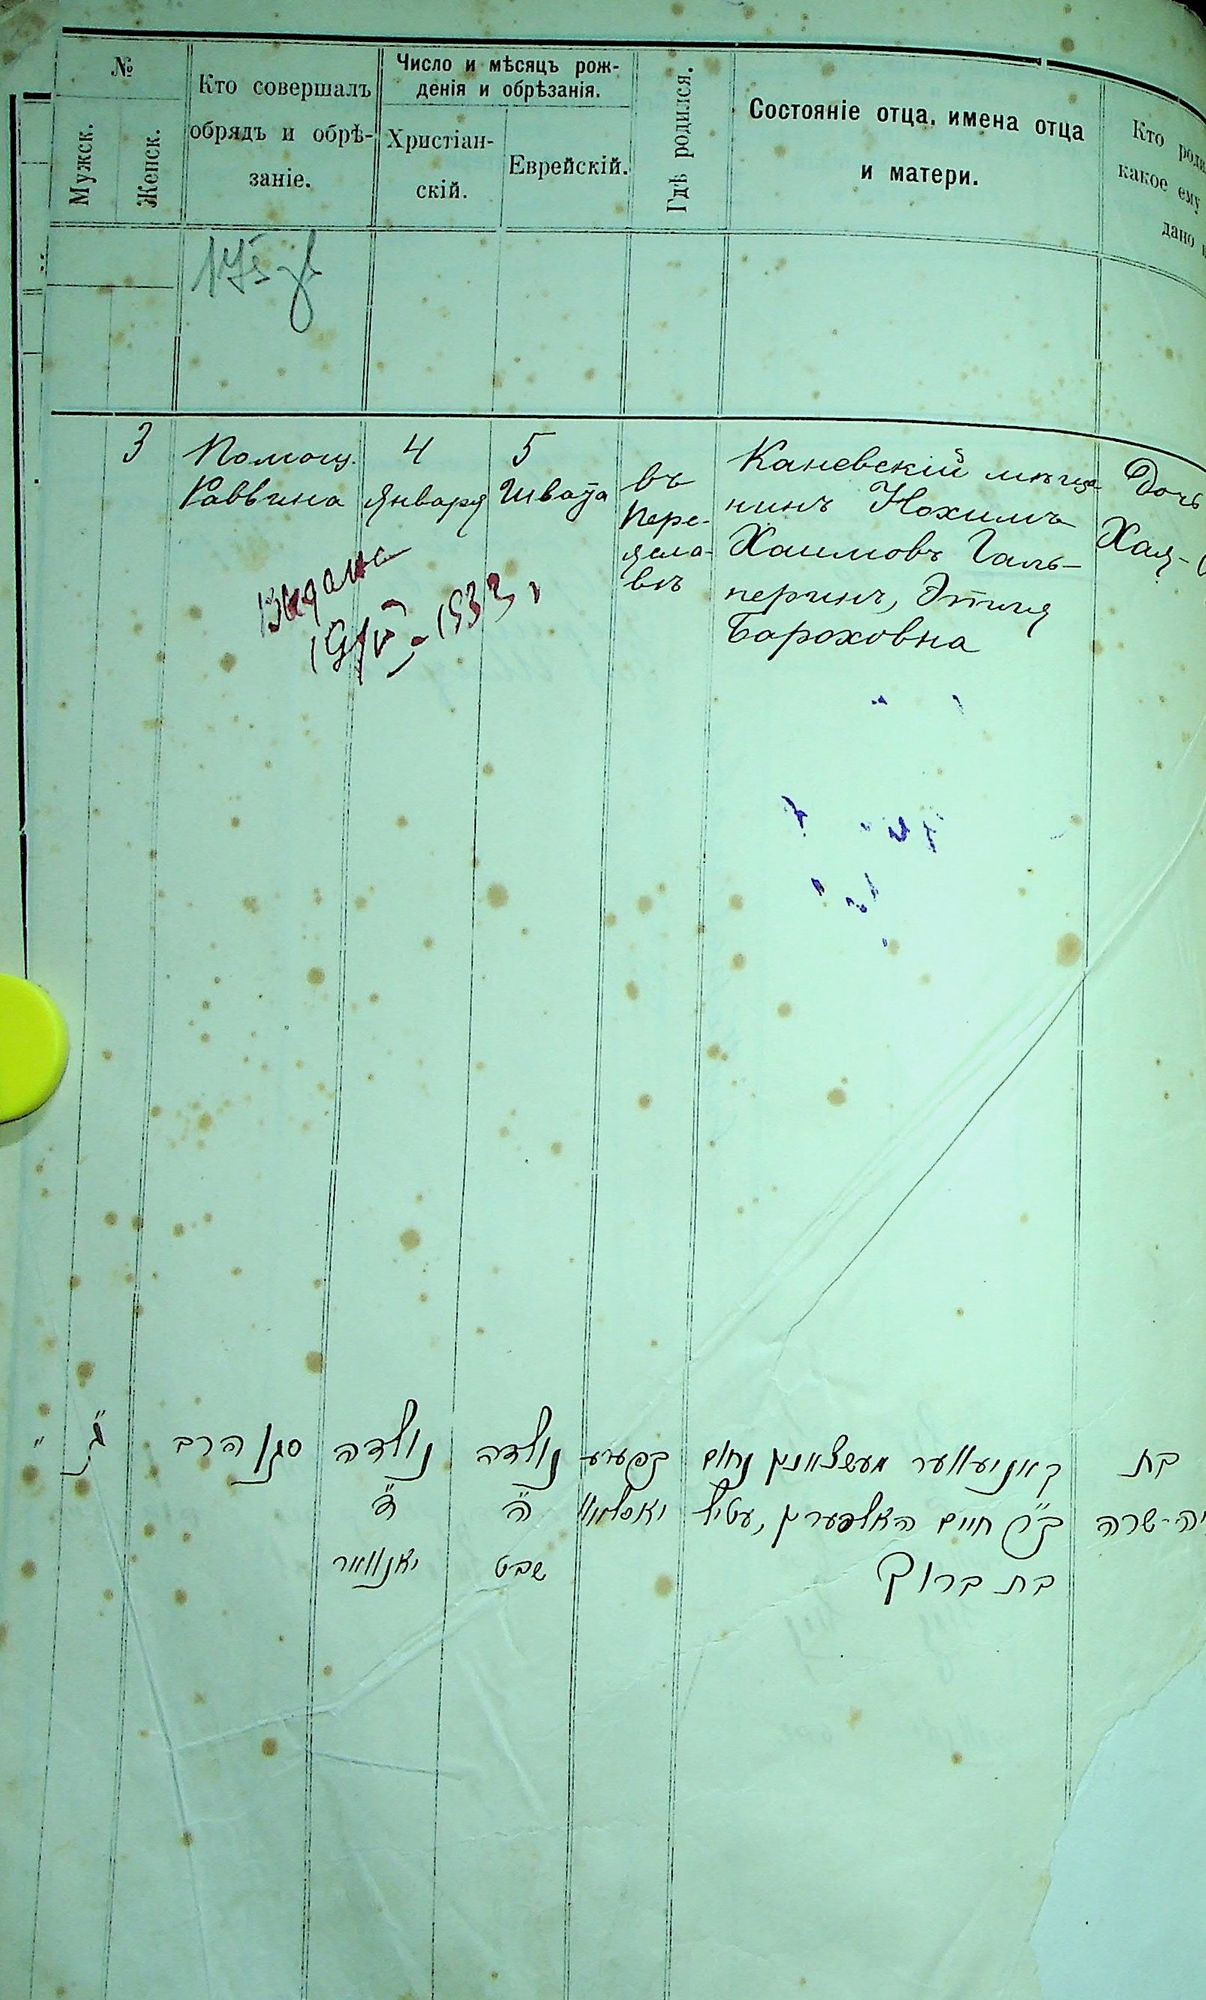 №
Мужск.
Женск.
Кто совершалъ
обрядъ и обрѣ-
заніе.
Число и мѣсяцъ рож-
денія и обрѣзанія.
Христіан-
скій.
Еврейскій.
Гдѣ родился.
Состояніе отца, имена отца
и матери.
Кто роди
какое ему
дано и
3
Помощ.
Раввина
4
Января
5
Швата
въ
Пере-
ясла-
влѣ
Каневскій мѣща-
нинъ Нохимъ
Хаимовъ Галь-
перинъ, Этиля
Бароховна
Дочь
Хая-
Выдана
1933
ג
סגן הרב
נולדה
ד
יאנוואר
נולדה
ה
שבט
בפערע
יאסלאוו
קאניעווער מעשצאנין נחום
ב"ר חיים האלפערין, עטיל
בת ברוך
בת
יה-שרה